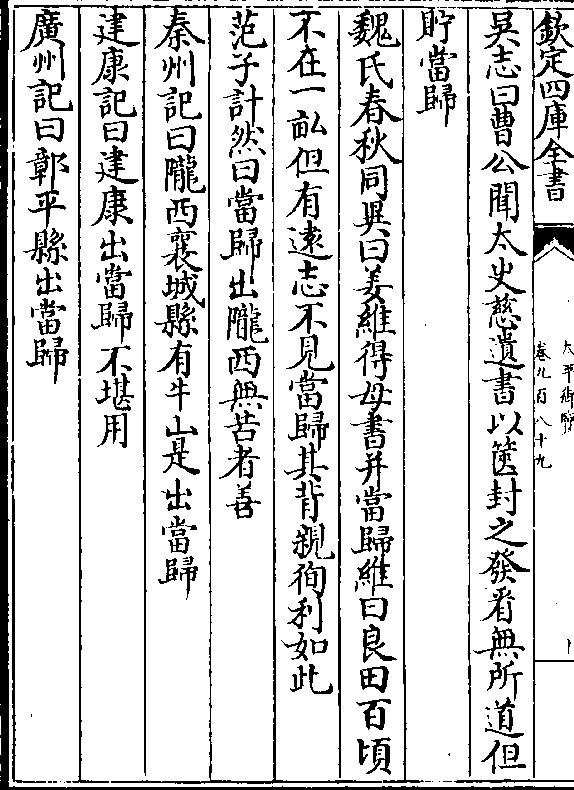 欽定四庫全書
太平御覽
卷九百八十九
吳志曰曹公聞太史慈遺書以篋封之發看無所道但
貯當歸
魏氏春秋同異曰姜維得母書并當歸維曰良田百頃
不在一畝但有逺志不見當歸其背親徇利如此
范子計然曰當歸出隴西無苦者善
秦州記曰隴西襄城縣有牛山是出當歸
建康記曰建康出當歸不堪用
廣州記曰鄣平縣出當歸